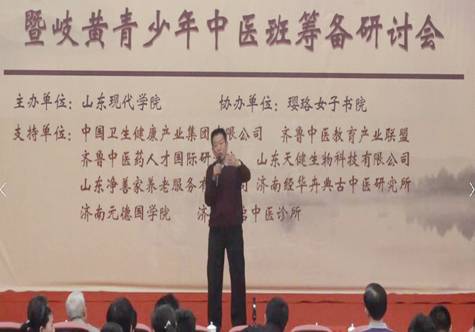 暨岐黄青少年中医班筹备研讨会
主办单位：山东现代学院 协办单位：璎珞女子书院
支持单位：中国卫生健康产业集团有限公司 齐鲁中医教育产业联盟
齐鲁中医药人才国际研 山东天健生物科技有限公司
山东净善家养老服务有 公司 济南经华卉典古中医研究所
济南元德国学院 济 中医诊所